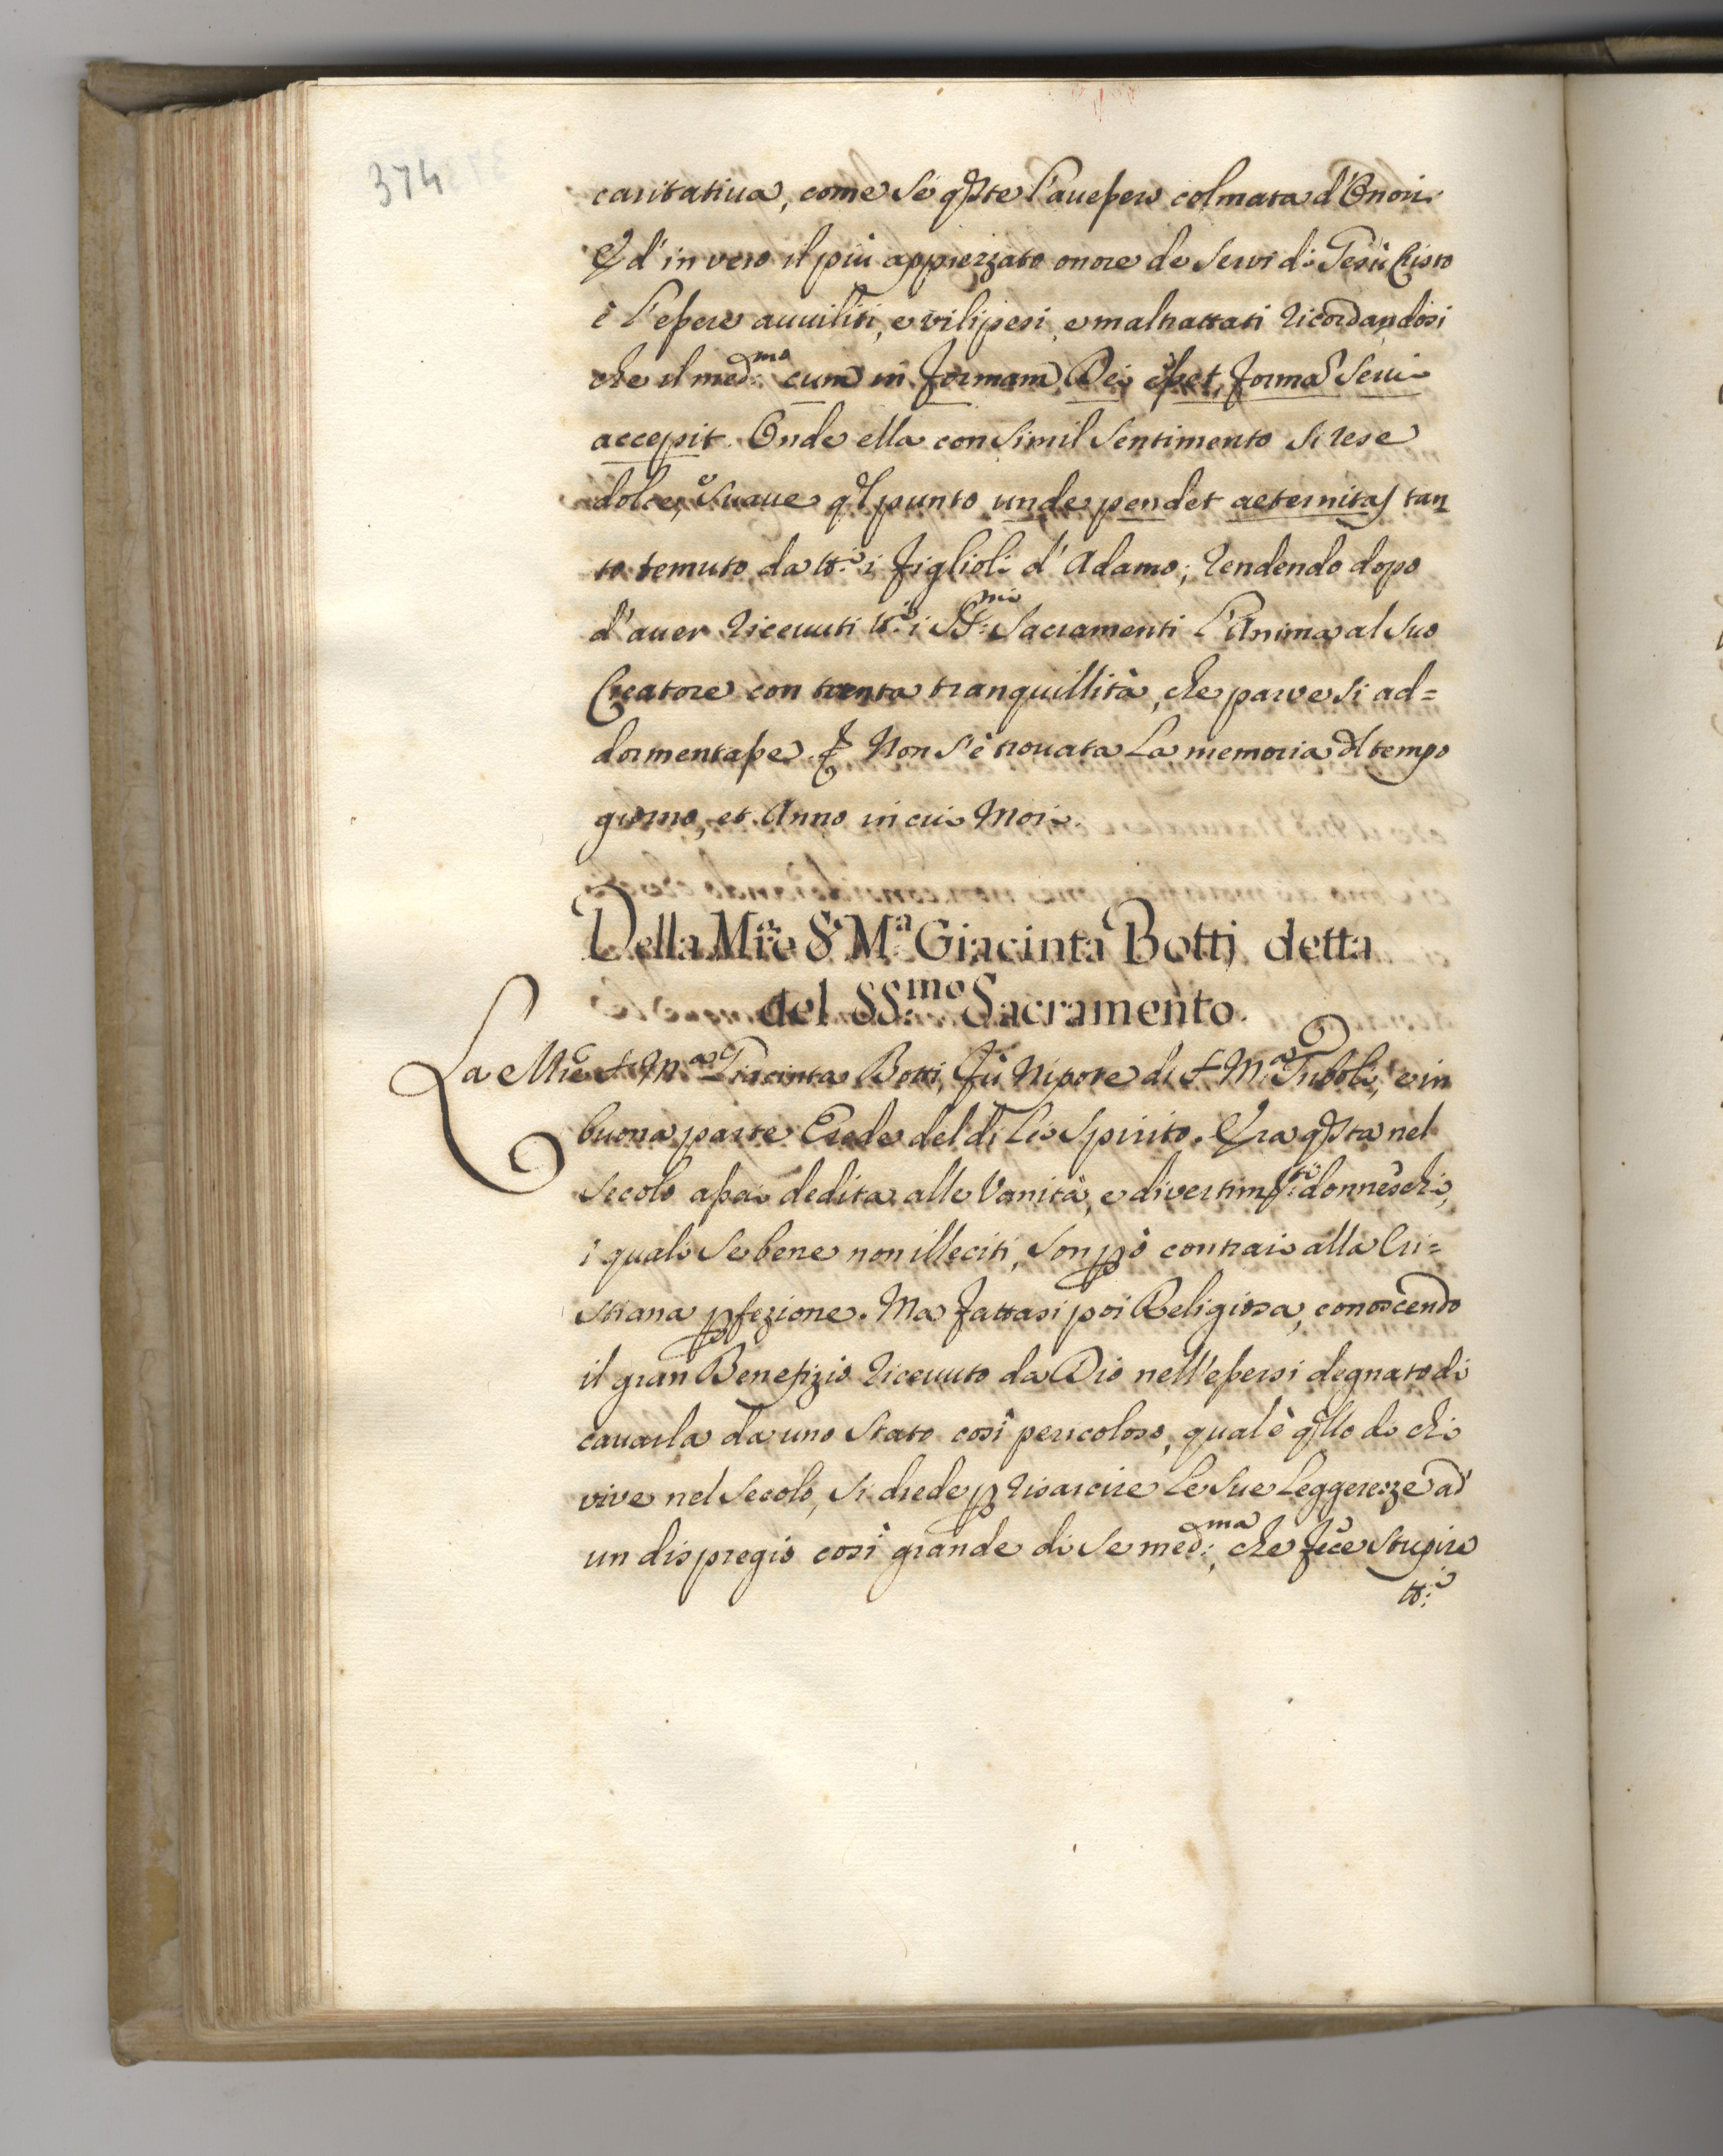 374
caritatiua, come se q̃ste l'auessero colmata d'Onori.
Ed' in vero il più apprezzato onore de Serui di Gesù Cristo
è l'essere auuiliti, e vilipesi, e maltrattati ricordandosi
che il med:mo cum in formam Dei esset, formã Serui
accepit. Onde ella con simil sentimento si rese
dolce, e suaue q̃l punto unde pendet aeternitas tan
to temuto da tt:i i figlioli d'Adamo; rendendo dopo
d'auer riceuuti tt:i i SS:mi Sacramenti l'Anima al suo
Creatore con tanta tranquillità, che parve si ad=
dormentasse. Non s'è trouata la memoria dl tempo
giorno, et Anno in cui Morì.
Della Mr̃e S.r M:a Giacinta Botti, detta
del SS:mo Sacramento.
La Mr̃e S.r M:a Giacinta Botti, fù Nipote di S.r M:a , e in
buona parte Erede del di lei Spirito. Era q̃sta nel
Secolo assai dedita alle Vanità, e divertim:ti donneschi,
i quali se bene non illeciti, son ꝑò contrari alla Cri=
stiana ꝑfezione. Ma fattasi poi Religiosa, conoscendo
il gran Benefizio riceuuto da Dio nell'essersi degnato di
cauarla da uno Stato così pericoloso, qual'è q̃llo di chi
vive nel Secolo, si diede ꝑ risarcire le sue leggerezze ad
un dispregio così grande di se med:ma, che fece stupire
tt:i